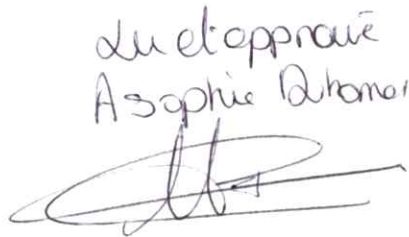 Lu et approuvé
A Sophie Duhamel